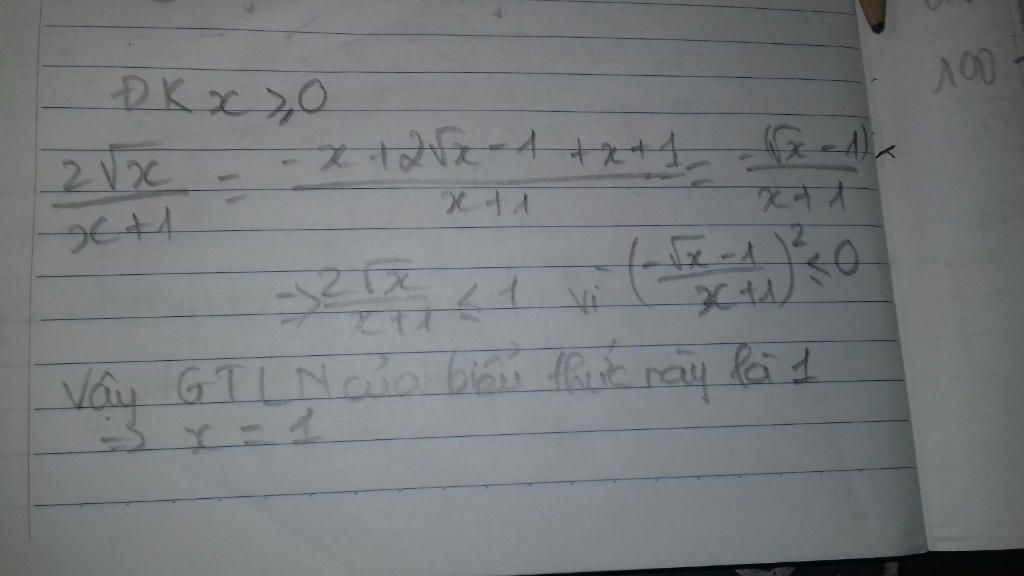 100
ĐK x ≥ 0
2√x / x+1 = -x+2√x-1+x+1 / x+1 = -(√x-1) / x+1
=> 2√x / x+1 ≤ 1 vì (-√x-1 / x+1)² ≤ 0
Vậy GTLN của biểu thức này là 1
=> x = 1